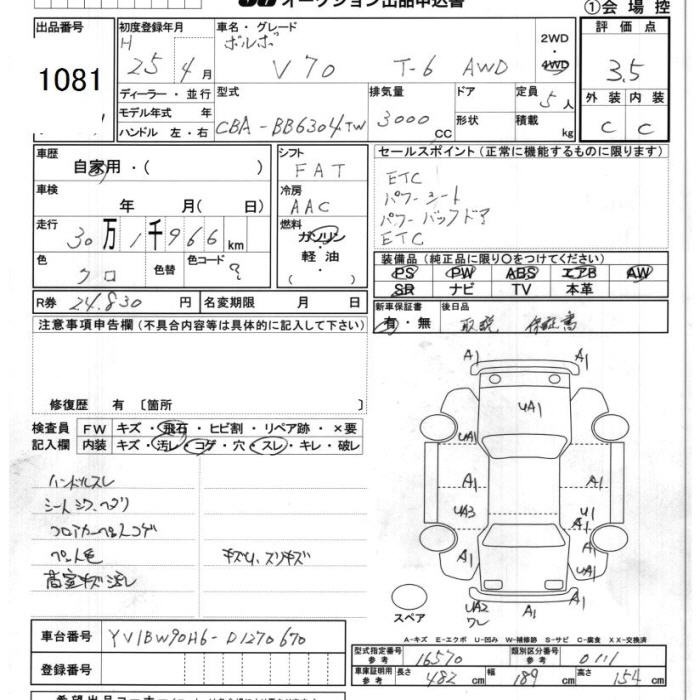 オークション出品申込書
①会場控
出品番号
1081
初度登録年月
H 25年4月
ディーラー・並行
モデル年式 年
ハンドル 左・右
車名・グレード
ボルボ
V70 T-6 AWD
2WD
4WD
評価点
3.5
外装 内装
C C
型式
CBA-BB6304TW
排気量
3000 CC
ドア
形状
定員
5人
積載
kg
車歴
自家用・( )
シフト
FAT
セールスポイント(正常に機能するものに限ります)
ETC
パワーシート
パワーバックドア
ETC
車検
年 月( 日)
冷房
AAC
走行
30万1千966km
燃料
ガソリン
軽油
( )
色
クロ
色替
色コード
装備品(純正品に限り○をつけてください)
PS PW ABS エアB AW
SR ナビ TV 本革
R券 24,830円
名変期限 月 日
新車保証書
有・無
後日品
取説 保証書
注意事項申告欄(不具合内容等は具体的に記入して下さい)
修復歴 有 〔箇所 〕
検査員
記入欄
FW キズ・飛石・ヒビ割・リペア跡・×要
内装 キズ・汚レ・コゲ・穴・スレ・キレ・破レ
ハンドルスレ
シートシワ、ヘタリ
フロアカーペットコゲ
ペット毛
荷室キズ汚レ
キズU、スリキズ
A1 A1 A1
UA1
UA1 A1
A1 A1
UA3 U1
A1 A1
UA2 A1 A1
ワレ
スペア
A-キズ E-エクボ U-凹み W-補修跡 S-サビ C-腐食 XX-交換済
車台番号 YV1BW90H6-D1270670
登録番号
型式指定番号
参考
16570
類別区分番号
参考
0111
車庫証明用
参考
長さ 482cm 幅 189cm 高さ 154cm
希望出品コーナー